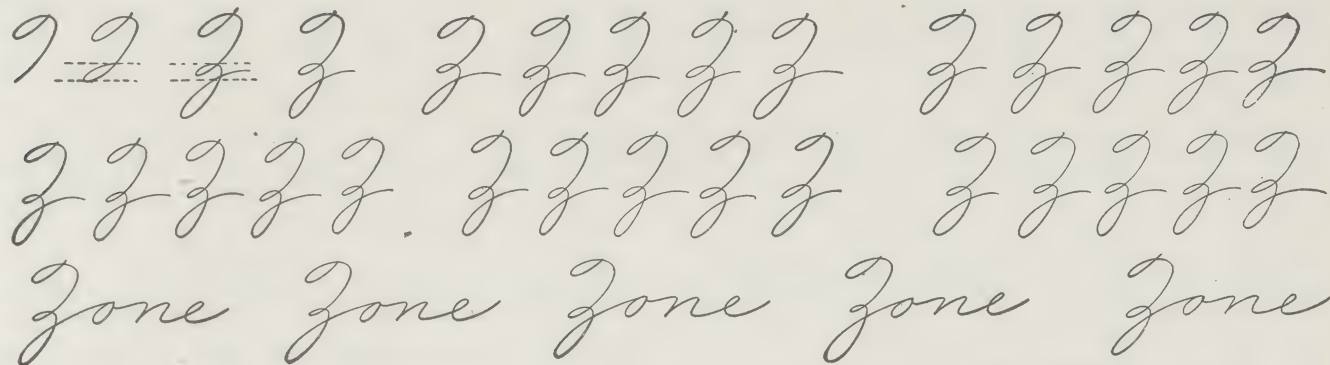 Z Z Z Z Z Z Z Z Z Z Z Z
Z Z Z Z Z Z Z Z Z Z Z Z Z Z Z
Zone Zone Zone Zone Zone